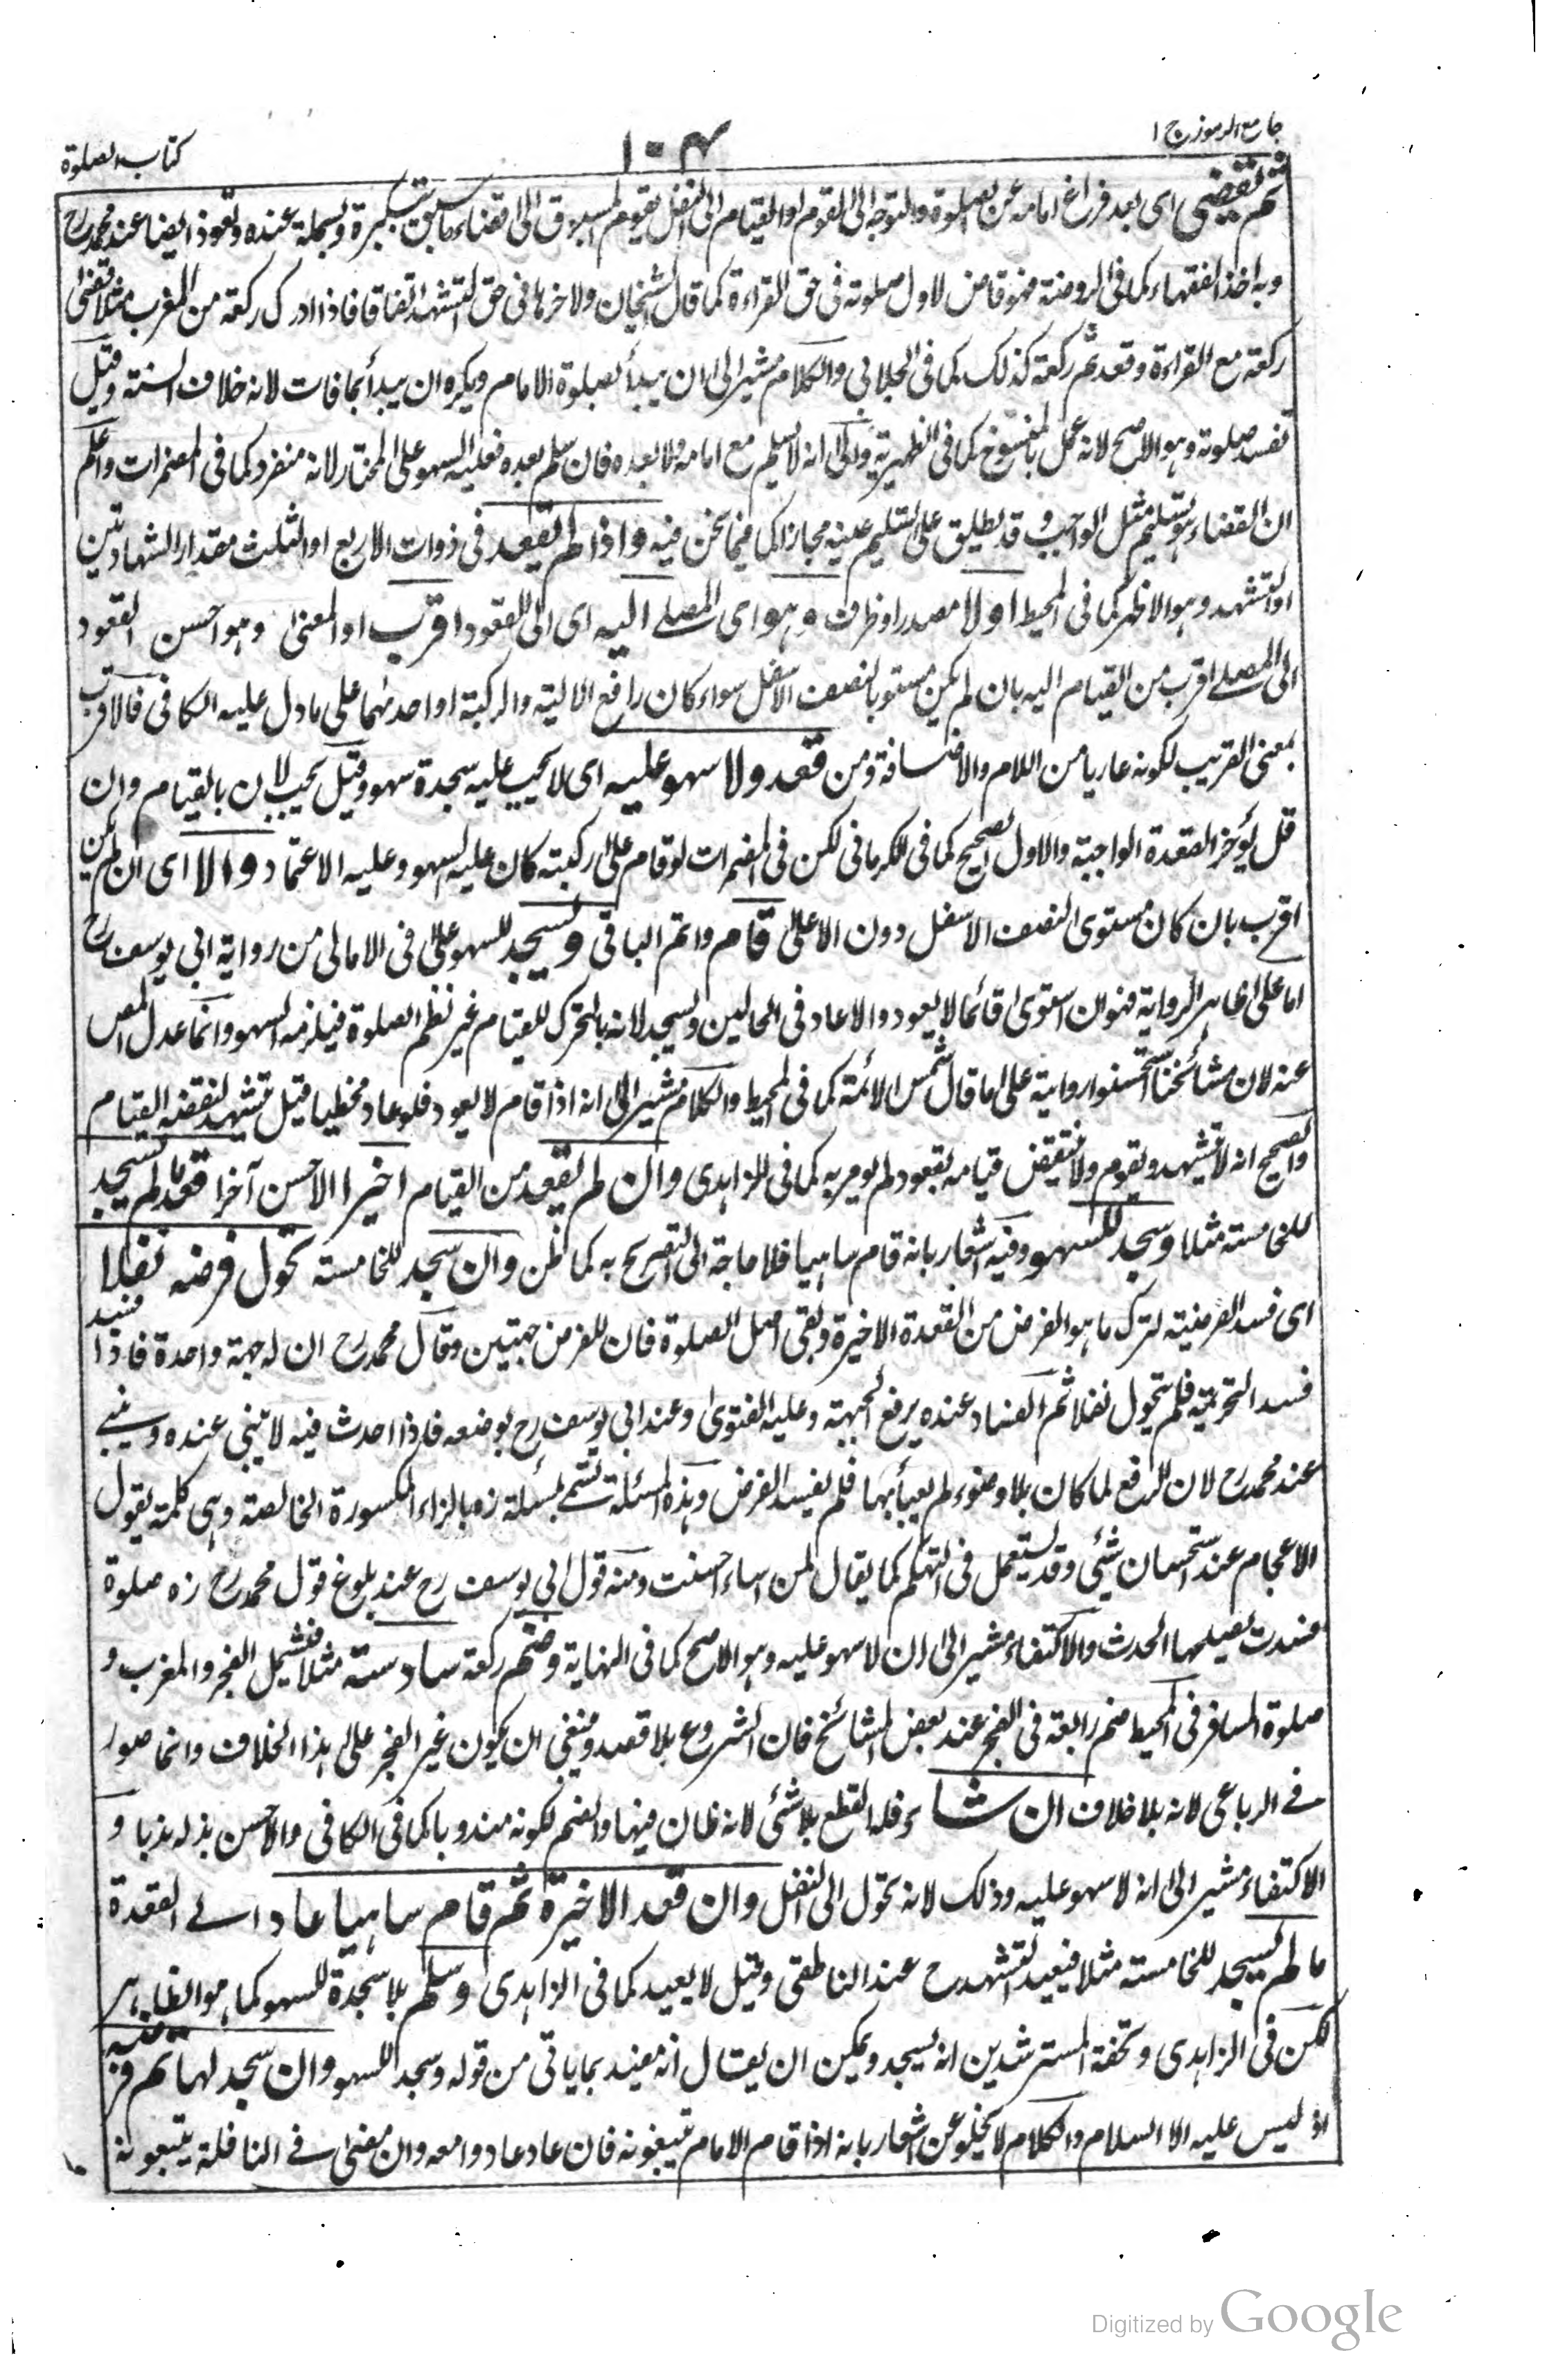 جامع الرموز ج ١
١٠٤
كتاب الصلوة
ثم يقضى اى بعد فراغ امامه عن الصلوة والتوجه الى القوم او القيام الى النفل يقوم المسبوق الى اقضاء ما سبق بتكبيرة وبسملة عنده وتعوذ ايضا عند محمد رح
وبه اخذ الفقهاء كما فى الروضة فهو قاض لاول صلوته فى حق القراءة كما قال الشيخان ولاخرها فى حق التشهد اتفاقا فاذا ادرك ركعة من المغرب مثلا يقضى
ركعة مع القراءة وقعد ثم ركعة كذلك كما فى الجلابى والكلام مشير الى ان يبدأ بصلوة الامام ويكره ان يبدأ بما فات لانه خلاف السنة وقيل
تفسد صلوته وهو الاصح لانه عمل بالمنسوخ كما فى الظهيرية والى انه لا يسلم مع امامه ولا بعده فان سلم بعده فعليه السهو على المختار لانه منفرد كما فى المضمرات واعلم
ان القضاء هو تسليم مثل الواجب وقد يطلق على تسليم عينه مجازا كما فيما نحن فيه واذا لم يقعد فى ذوات الاربع او الثلث مقدار الشهادتين
او التشهد وهو الاظهر كما فى المحيط اولا مصدر او ظرف وهو اى المصلے اليه اى الى القعود اقرب او المعنى وهو احسن القعود
الى المصلے اقرب من القيام اليه بان لم يكن مستويا لنصف الاسفل سواء كان رافع الالية والركبة او احدهما على ما دل عليه الكافى فالاقرب
بمعنى القريب لكونه عاريا من اللام والاضافة ومن قعد ولا سهو عليه اى لا يجب عليه سجدة سهو وقيل يجب لان بالقيام وان
قل يؤخر القعدة الواجبة والاول الصحيح كما فى الكرمانى لكن فى المضمرات لو قام على ركبتيه كان عليه السهو وعليه الاعتماد والا اى ان لم يكن
اقرب بان كان مستوى النصف الاسفل دون الاعلى قام واتم الباقى ويسجد للسهو على فى الامالى من رواية ابى يوسف رح
اما على ظاهر الرواية فهو ان استوى قائما لا يعود والا عاد فى الحالين ويسجد لانه بالتحرك للقيام غير نظم الصلوة فيلزمه السهو وانما عدل المص
عنه لان مشائخنا استحسنوا رواية على ما قال شمس الائمة كما فى المحيط والكلام مشير الى انه اذا قام لا يعود فلو عاد مخطيا قيل يتشهد لنقضه القيام
والصحيح انه لا يتشهد ويقوم ولا ينتقض قيامه بقعود لم يومر به كما فى الزاهدى وان لم يقعد من القيام اخيرا الاحسن آخرا قعد ما لم يسجد
للخامسة مثلا وسجد للسهو وفيه اشعار بانه قام ساهيا فلا حاجة الى التصريح به كما ظن وان سجد للخامسة تحول فرضه نفلا
اى فسد الفرضية لترك ما هو الفرض من القعدة الاخيرة وبقى اصل الصلوة فان للفرض جهتين وقال محمد رح ان له جهة واحدة فاذا فسد
فسد التحريمة فلم يتحول نفلا ثم الفساد عنده يرفع الجبهة وعليه الفتوى وعند ابى يوسف رح بوضعه فاذا احدث فيه لا يبنى عنده ويبنے
عند محمد رح لان الرفع لما كان بلا وضوء لم يعبأ بها فلم يفسد الفرض وهذه المسئلة تسمى بمسئلة زه بالزاء المكسورة الخالصة وهى كلمة يقول
الاعجام عند استحسان شيئ وقد يستعمل فى التهكم كما يقال لمن اساء احسنت ومنه قول ابى يوسف رح عند بلوغ قول محمد رح زه صلوة
فسدت يصلحها الحدث والاكتفاء مشير الى ان لا سهو عليه وهو الاصح كما فى النهاية وضم ركعة سادسة مثلا فيشمل الفجر والمغرب و
صلوة المسافر فى المحيط ضم رابعة فى الفجر عند بعض المشائخ فان الشروع بلا قصد وينبغى ان يكون غير الفجر على هذا الخلاف وانما صور
فے الرباعى لانه بلا خلاف ان شاء فله القطع بلا شئى لانه ظان فيها والضم لكونه مندوبا كما فى الكافى والاحسن بذله بذبا و
الاكتفاء مشير الى انه لا سهو عليه وذلك لانه تحول الى النفل وان قعد الاخيرة ثم قام ساهيا عاد الے القعدة
ما لم يسجد للخامسة مثلا فيعيد التشهد رح عند الناطقى وقيل لا يعيد كما فى الزاهدى وسلم بلا سجدة للسهو كما هو الظاهر
لكن فى الزاهدى وتحفة المسترشدين انه يسجد ويمكن ان يقال انه مفيد بما ياتى من قوله وسجد للسهو وان سجد لها تم فرضه
اذ ليس عليه الا السلام والكلام لا يخلو عن اشعار بانه اذا قام الامام يتبعونه فان عاد عادوا معه وان مضى فے النافلة يتبعونه
Digitized by Google